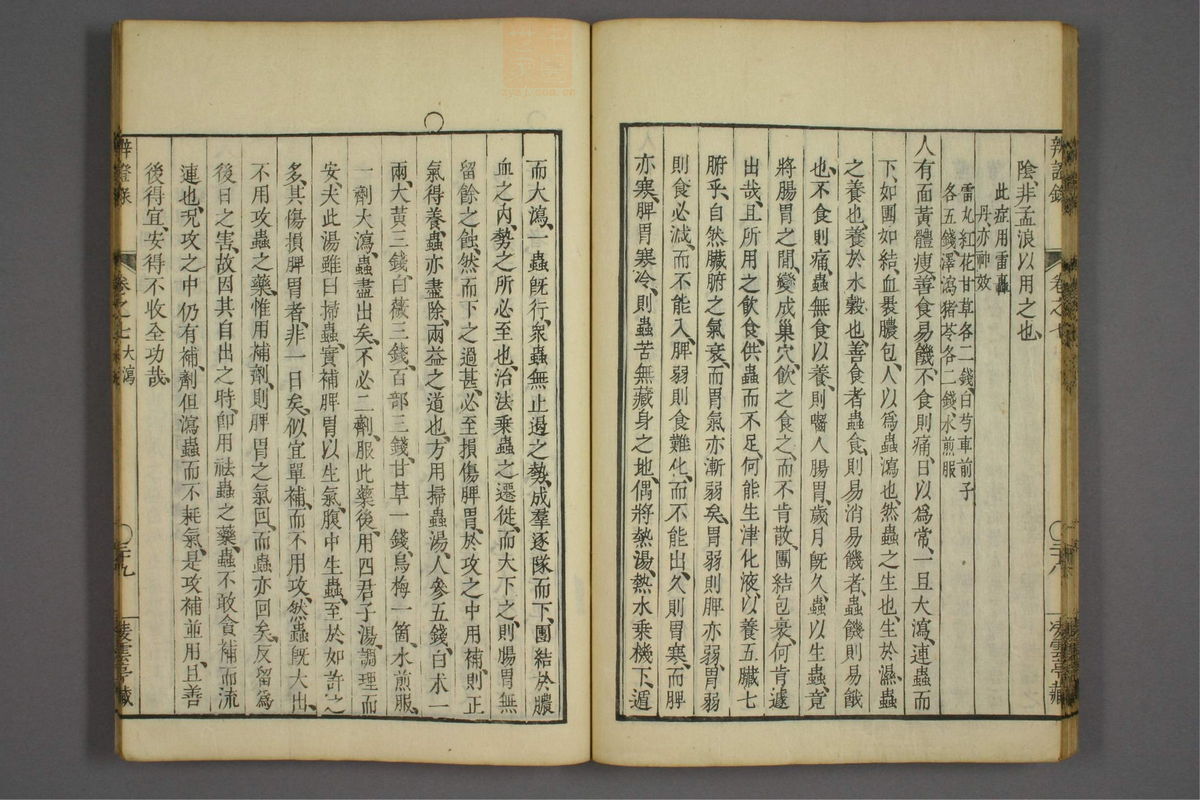 辨證錄 卷之七 三十八 凌雲亭藏
陰、非孟浪以用之也、
此症用雷轟
丹亦神效
雷丸紅花甘草各二錢、白芍車前子
各五錢、澤瀉猪苓各二錢、水煎服
人有面黃體瘦、善食易饑、不食則痛、日以爲常、一旦大瀉、連蟲而
下、如團如結、血裹膿包、人以爲蟲瀉也、然蟲之生也、生於濕、蟲
之養也、養於水穀也、善食者蟲食、則易消易饑者、蟲饑則易餓
也、不食則痛、蟲無食以養、則嚙人腸胃、歲月旣久、蟲以生蟲、竟
將腸胃之間、變成巢穴、飲之食之、而不肯散、團結包裹、何肯遽
出哉、且所用之飲食、供蟲而不足、何能生津化液、以養五臟七
腑乎、自然臟腑之氣衰、而胃氣亦漸弱矣、胃弱則脾亦弱、胃弱
則食必減、而不能入、脾弱則食難化、而不能出、久則胃寒、而脾
亦寒、脾胃寒冷、則蟲苦無藏身之地、偶將熱湯、熱水乘機下、遁
而大瀉、一蟲旣行、衆蟲無止遏之勢、成羣逐隊而下、團結於膿
血之內、勢之所必至也、治法乘蟲之遷徙、而大下之、則腸胃無
留餘之蝕、然而下之過甚、必至損傷脾胃、於攻之中用補、則正
氣得養、蟲亦盡除、兩益之道也、方用掃蟲湯、人參五錢、白术一
兩、大黃三錢、白薇三錢、百部三錢、甘草一錢、烏梅一箇、水煎服、
一劑大瀉、蟲盡出矣、不必二劑、服此藥後、用四君子湯、調理而
安、夫此湯雖曰掃蟲、實補脾胃以生氣、腹中生蟲、至於如許之
多、其傷損脾胃者、非一日矣、似宜單補、而不用攻、然蟲旣大出、
不用攻蟲之藥、惟用補劑、則脾胃之氣回、而蟲亦回矣、反留爲
後日之害、故因其自出之時、卽用祛蟲之藥、蟲不敢貪補而流
連也、況攻之中仍有補、劑但瀉蟲而不耗氣、是攻補並用、且善
後得宜、安得不收全功哉、
辨證錄 卷之七 大瀉 三十九 凌雲亭藏
zysj.com.cn